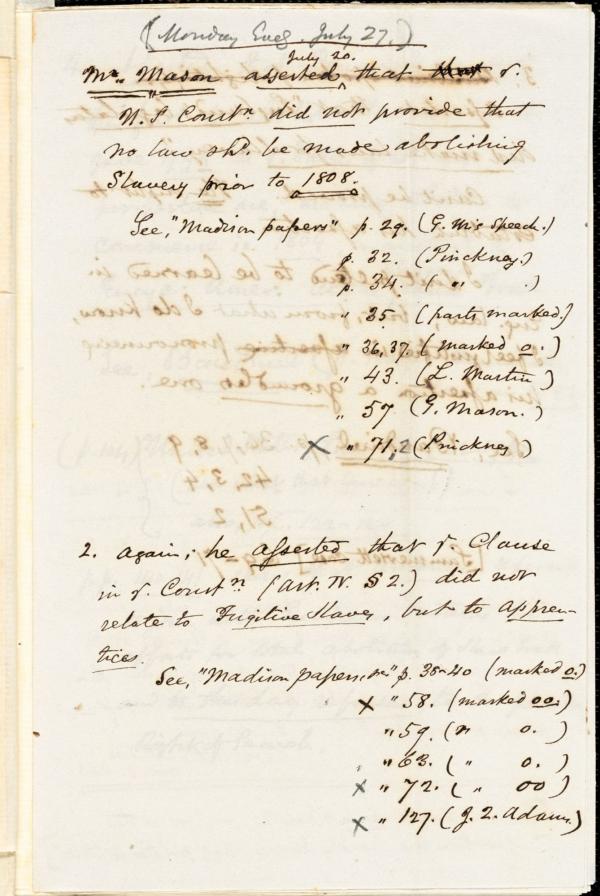 (Monday Eveg. July 27.)
July 20.
Mr. Mason asserted that yr.
U.S. Constn did not provide that
no law shd. be made abolishing
Slavery prior to 1808.
See, "Madison papers" p. 29. (G. M's Speech.)
p. 32. (Pinckney.)
p. 34. ( " .)
" 35. (parts marked.)
" 36, 37. (marked o.)
" 43. (L. Martin)
" 57 (G. Mason.)
X " 71, 2 (Pinckney)
2. Again; he asserted that yr Clause
in yr. Constn (Art. IV. § 2.) did not
relate to Fugitive Slaves, but to appren-
tices.
See, "Madison papers, " p. 35-40 (marked o.)
X " 58. (marked oo.)
" 59. ( " o. )
" 63. ( " o. )
X " 72. ( " oo )
X " 127. (J. Q. Adams.)